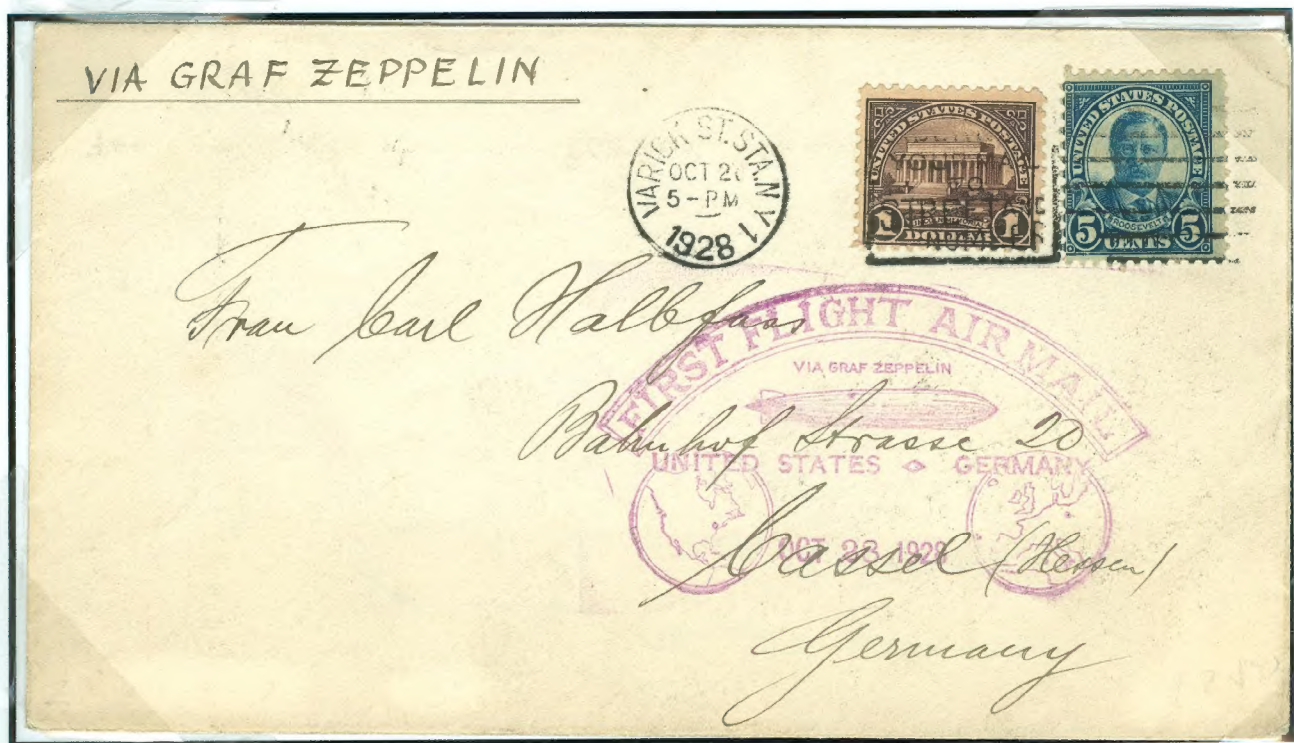 VIA GRAF ZEPPELIN
VARICK ST. STA. N Y 1
OCT 2
5 - PM
1928
UNITED STATES POSTAGE
1 DOLLAR 1
UNITED STATES POSTAGE
ROOSEVELT
5 CENTS 5
STREET
Frau Carl Halbfaas
FIRST FLIGHT AIR MAIL
VIA GRAF ZEPPELIN
Bahnhof Strasse 20
UNITED STATES GERMANY
OCT 28 1928
Cassel (Hessen)
Germany